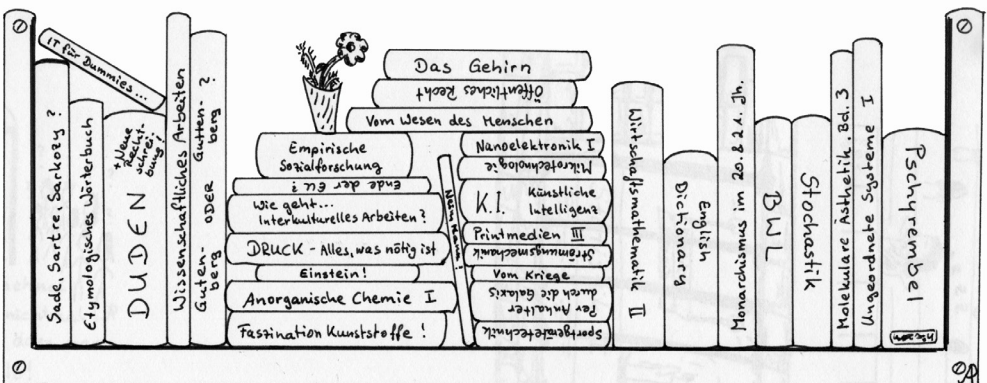 IT für Dummies...
Sade, Sartre, Sarkozy?
Etymologisches Wörterbuch
DUDEN
+ Neue
Recht-
schrei-
bung!
Wissenschaftliches Arbeiten
Guten-
berg
ODER
Gutten-
berg ?
Empirische
Sozialforschung
Ende der EU?
Wie geht...
Interkulturelles Arbeiten?
DRUCK - Alles, was nötig ist
Einstein!
Anorganische Chemie I
Faszination Kunststoffe!
Das Gehirn
Öffentliches Recht
Vom Wesen des Menschen
Nanoelektronik I
Mikrotechnologie
K.I. Künstliche
Intelligenz
Printmedien III
Strömungsmechanik
Vom Kriege
Per Anhalter
durch die Galaxis
Sportgerätetechnik
Wirtschaftsmathematik II
English
Dictionary
Monarchismus im 20. & 21. Jh.
BWL
Stochastik
Molekulare Ästhetik, Bd. 3
Ungeordnete Systeme I
Pschyrembel